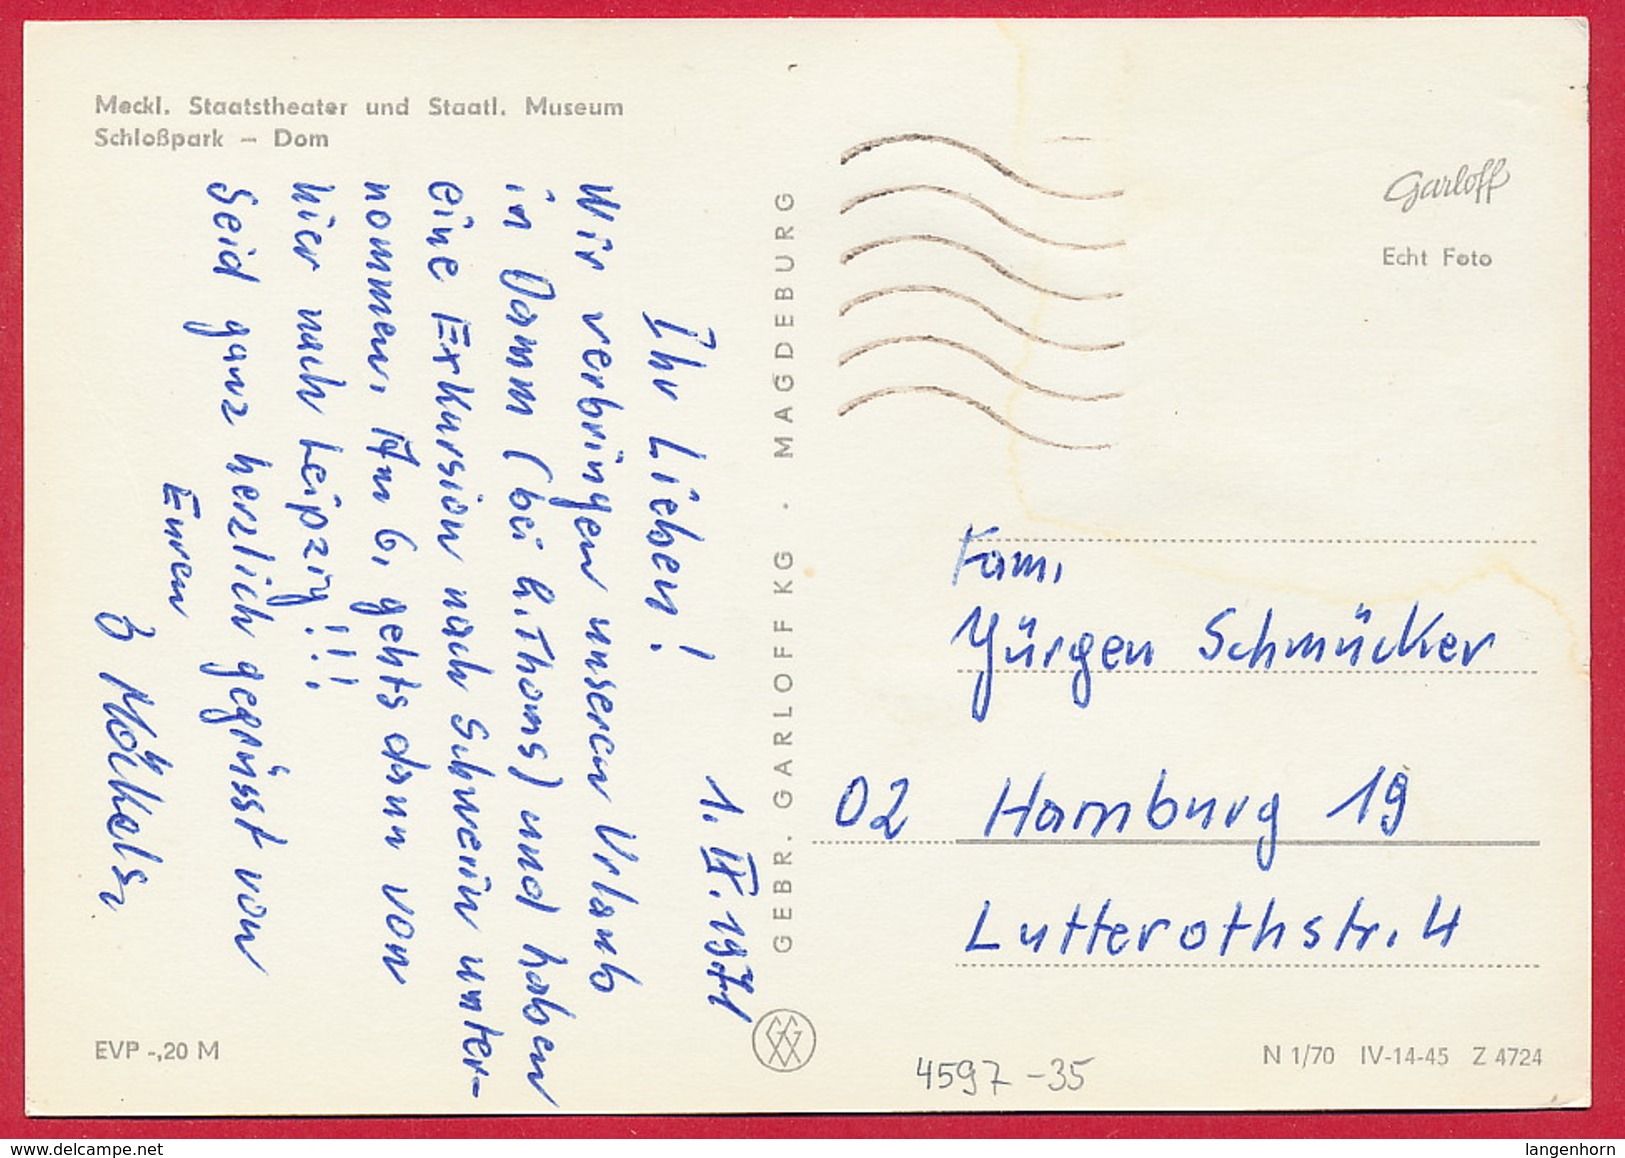 Meckl. Staatstheater und Staatl. Museum
Schloßpark – Dom
1. IX. 1971
Ihr Lieben!
Wir verbringen unseren Urlaub
in Damm (bei h. Thoms) und haben
eine Exkursion nach Schwerin unter-
nommen. Am 6. gehts dann von
hier nach Leipzig!!!
Seid ganz herzlich gegrüsst von
Euren
3 Möckels.
GEBR. GARLOFF KG · MAGDEBURG
Garloff
Echt Foto
Fam.
Jürgen Schmücker
02 Hamburg 19
Lutterothstr. 4
EVP -,20 M
4597 -35
N 1/70 IV-14-45 Z 4724
langenhorn